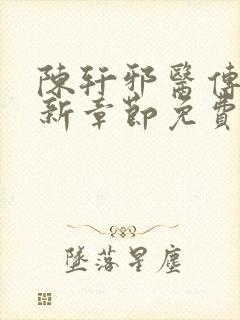 陳軒邪醫傳
新章節免費
墜落星塵